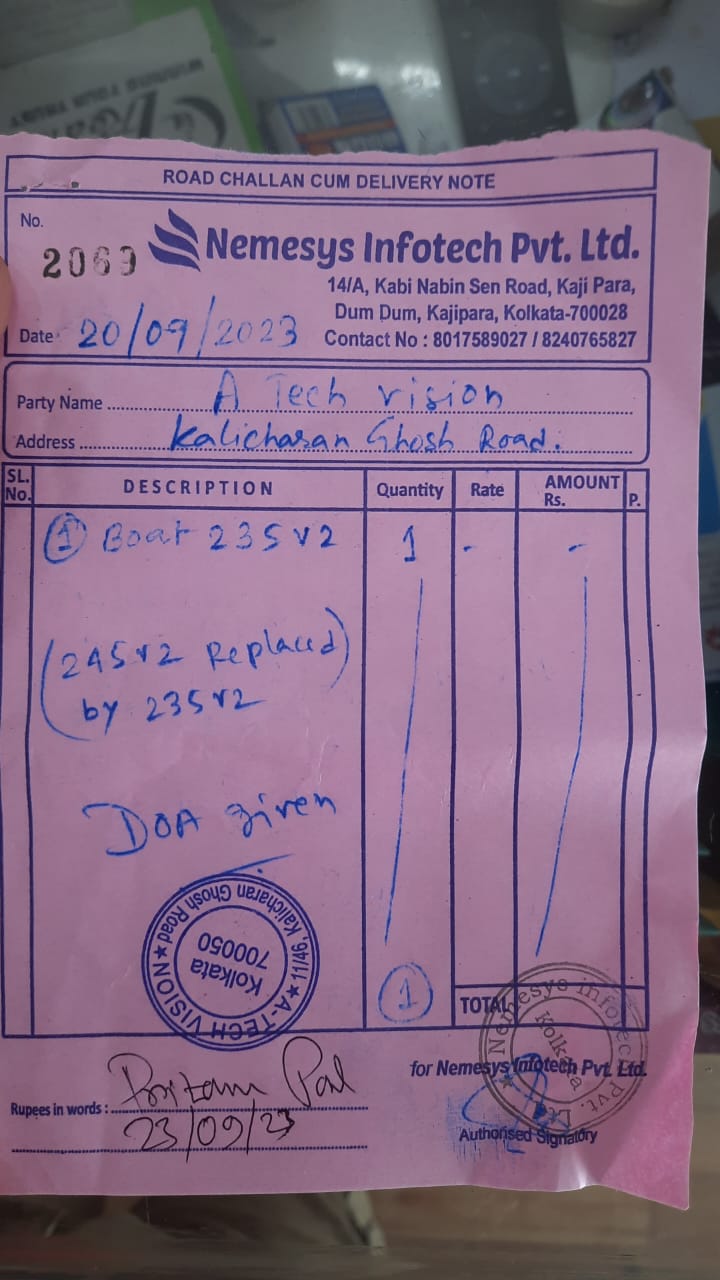 ROAD CHALLAN CUM DELIVERY NOTE
No.
2069
Nemesys Infotech Pvt. Ltd.
14/A, Kabi Nabin Sen Road, Kaji Para,
Dum Dum, Kajipara, Kolkata-700028
Date 20/09/2023
Contact No : 8017589027 / 8240765827
Party Name A Tech vision
Address Kalicharan Ghosh Road.
SL. No. DESCRIPTION Quantity Rate AMOUNT Rs. P.
① Boat 235 v2 1 - -
(245 v2 Replaced
by 235 v2)
DOA given
★ A-TECH VISION ★ 11/46, Kalicharan Ghosh Road
Kolkata
700050
1
TOTAL
Nemesys Infotech Pvt. Lt
Kolkata
for Nemesys Infotech Pvt. Ltd.
Rupees in words : Pritam Pal
23/09/23
Authorised Signatory